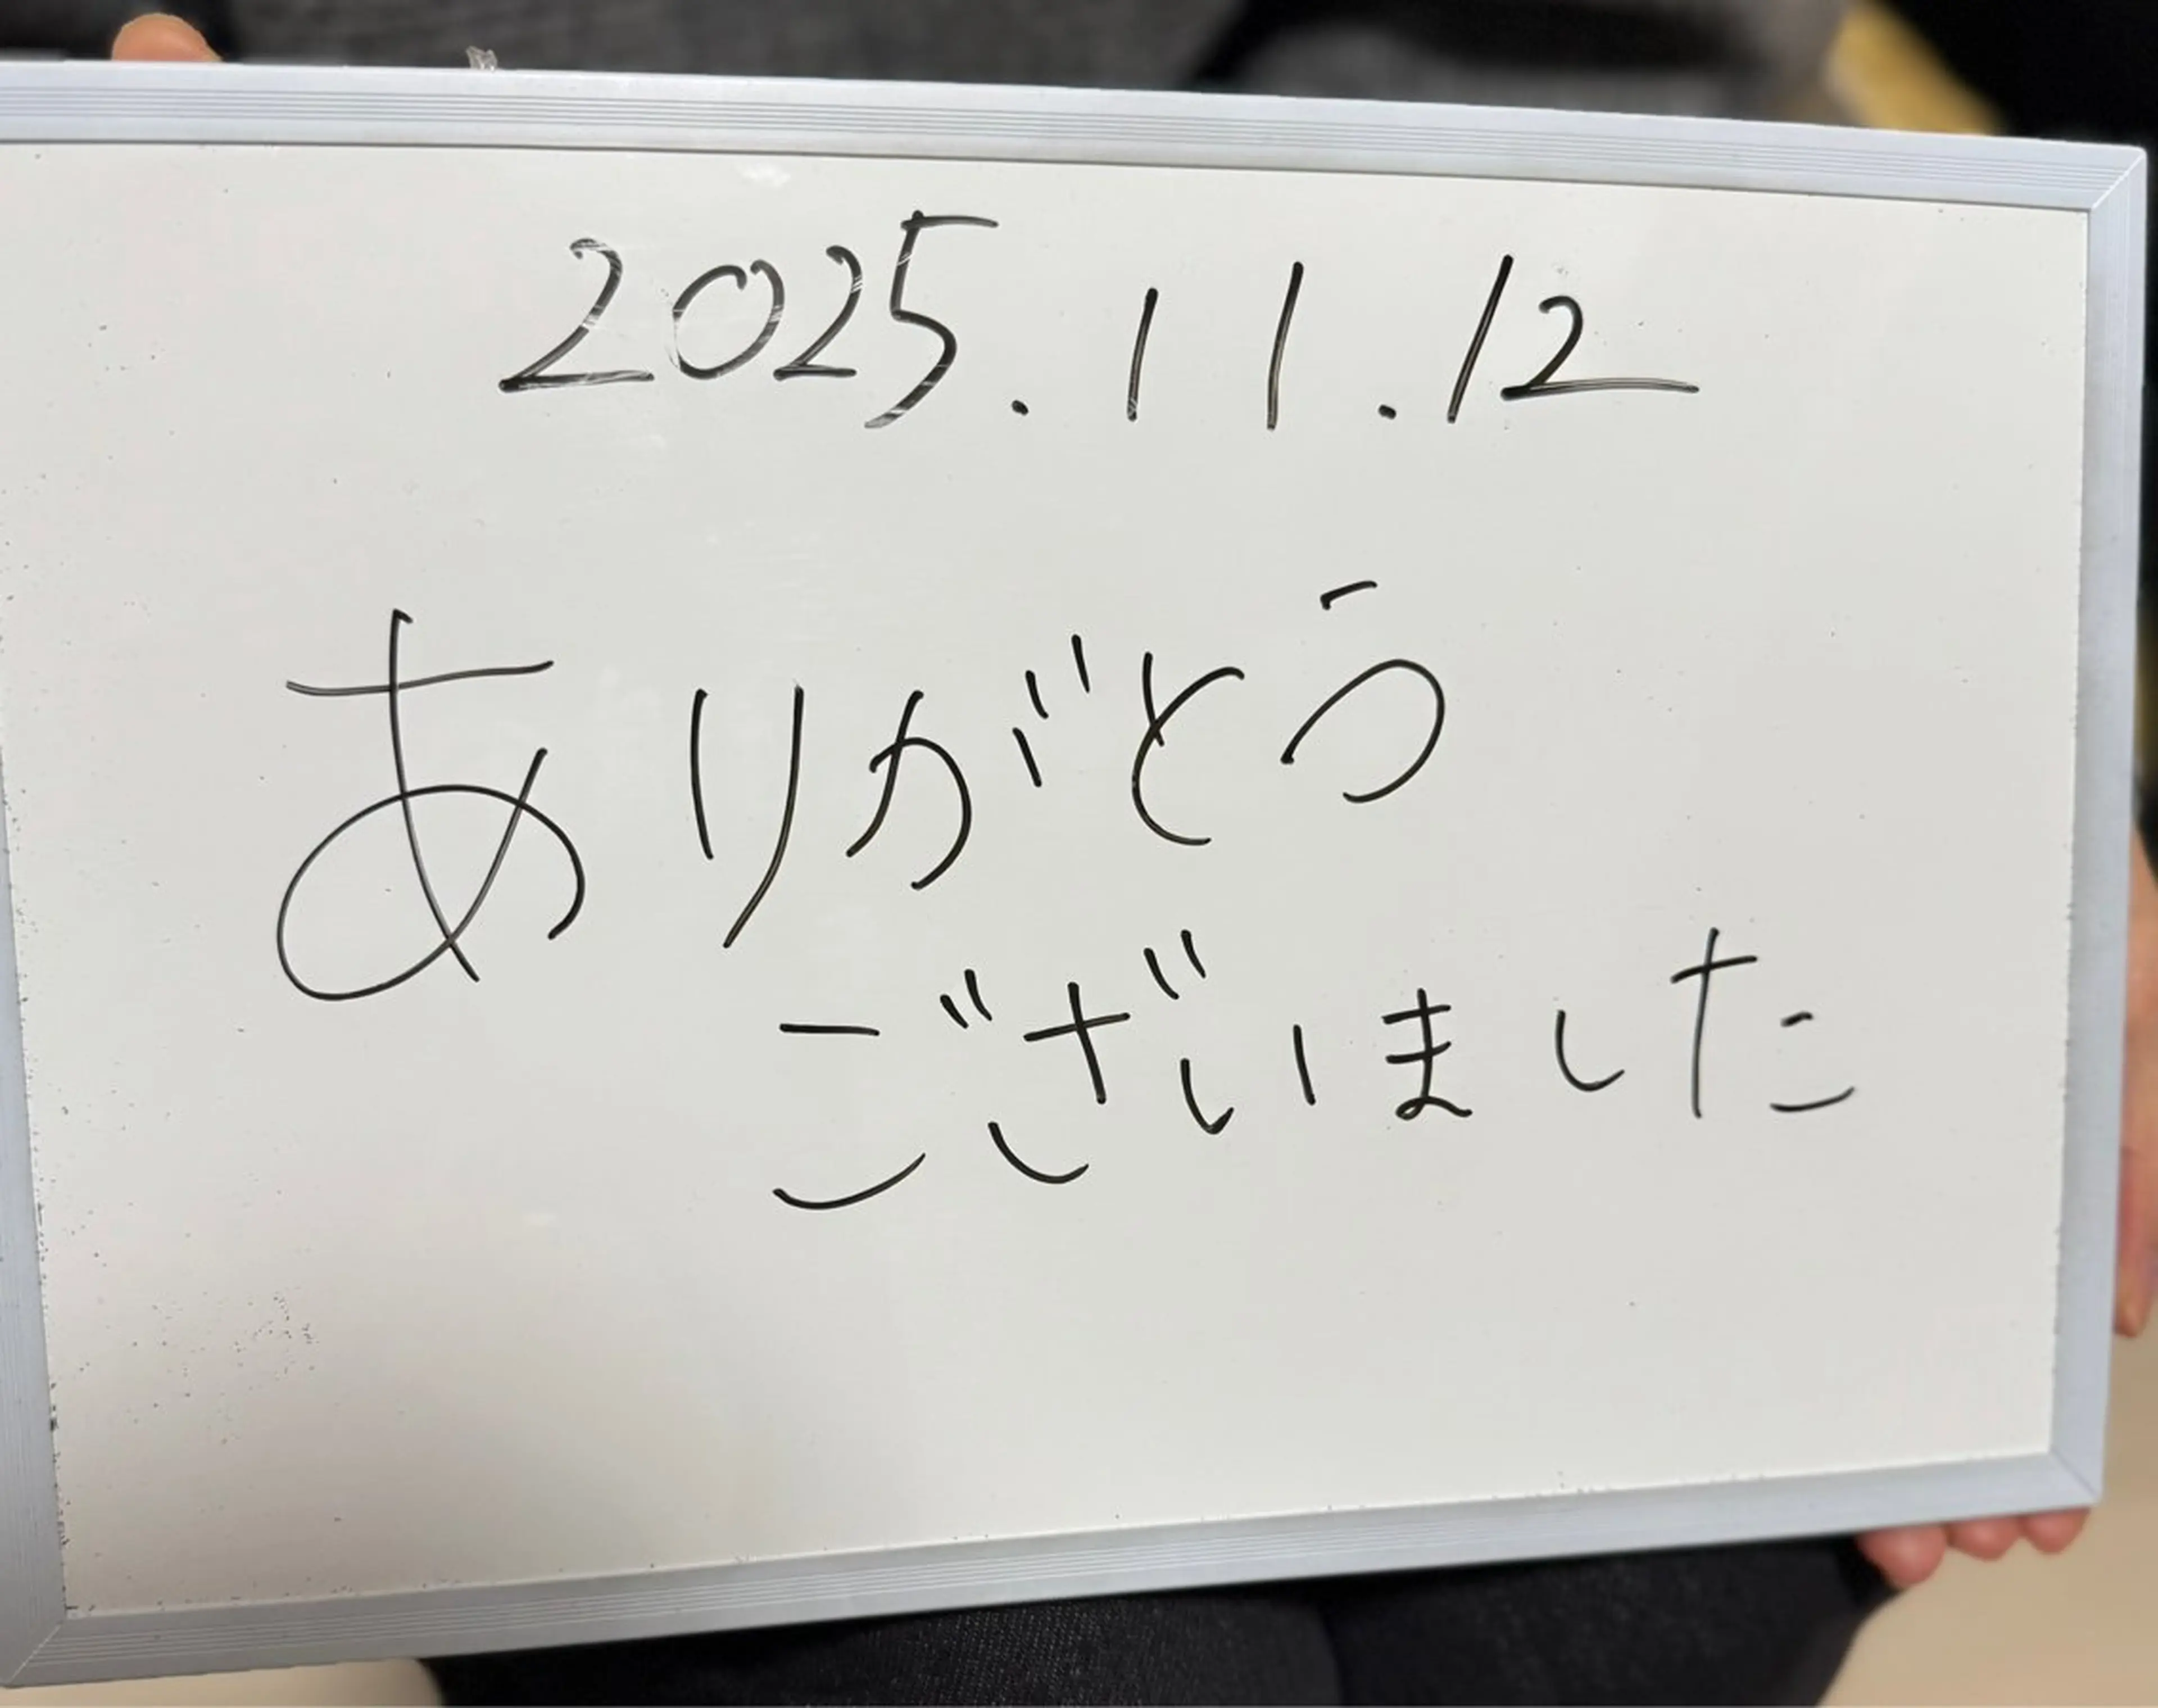 2025.11.12
ありがとう
ございました